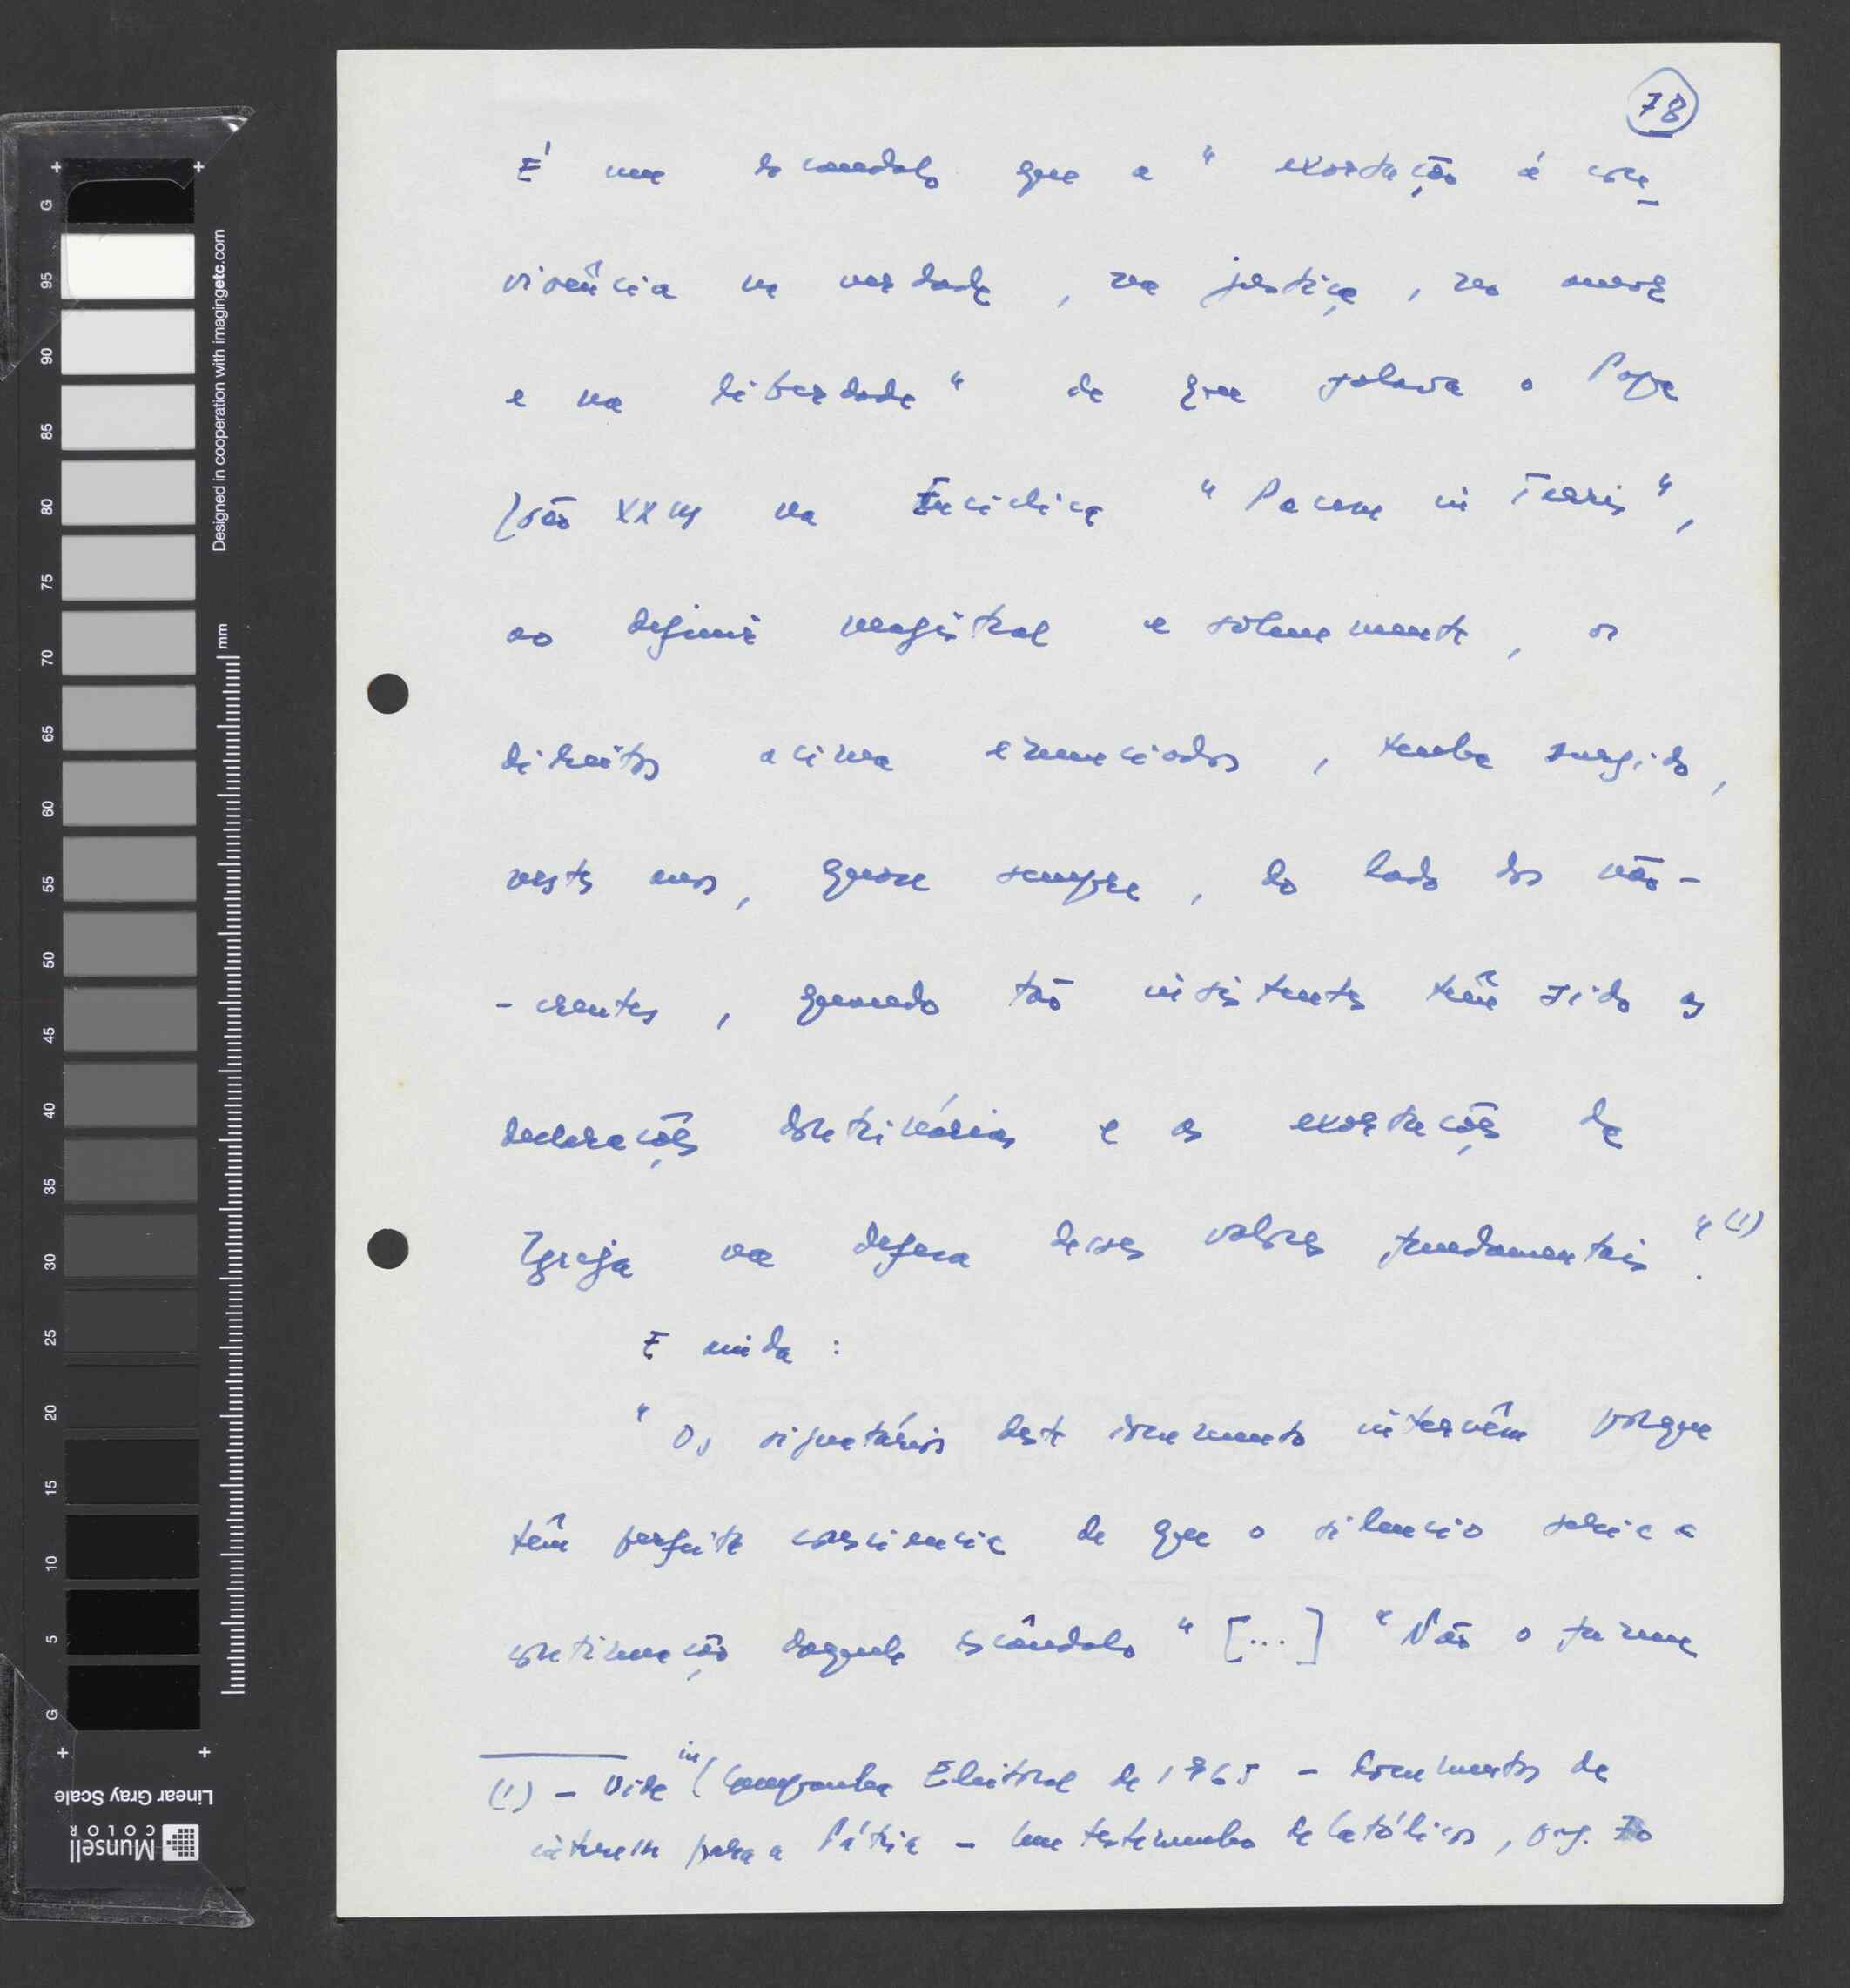 78
É um escandalo que a "exortação à con-
vivência na verdade, na justiça, no amor
e na liberdade" de que falava o Papa
João XXIII na Encíclica "Pacem in Terris",
ao definir magistral e solenemente, os
direitos acima enunciados, tenha surgido,
nestes anos, quase sempre, do lado dos não-
- crentes, quando tão insistentes têm sido as
declarações doutrinárias e as exortações da
Igreja na defesa desses valores fundamentais". (1)
E ainda:
"Os signatários deste documento intervêm porque
têm perfeita consciencia de que o silencio seria a
continuação daquele escândalo" [...] "Não o fazem
(1) - Vide in Campanha Eleitoral de 1965 - Documentos de
interesse para a Pátria - Um testemunho de Católicos, pag. 70
G 95 90 85 80 75 70 65 60 55 50 45 40 35 30 25 20 15 10 5 G
Designed in cooperation with imagingetc.com
mm
Linear Gray Scale
Munsell
COLOR